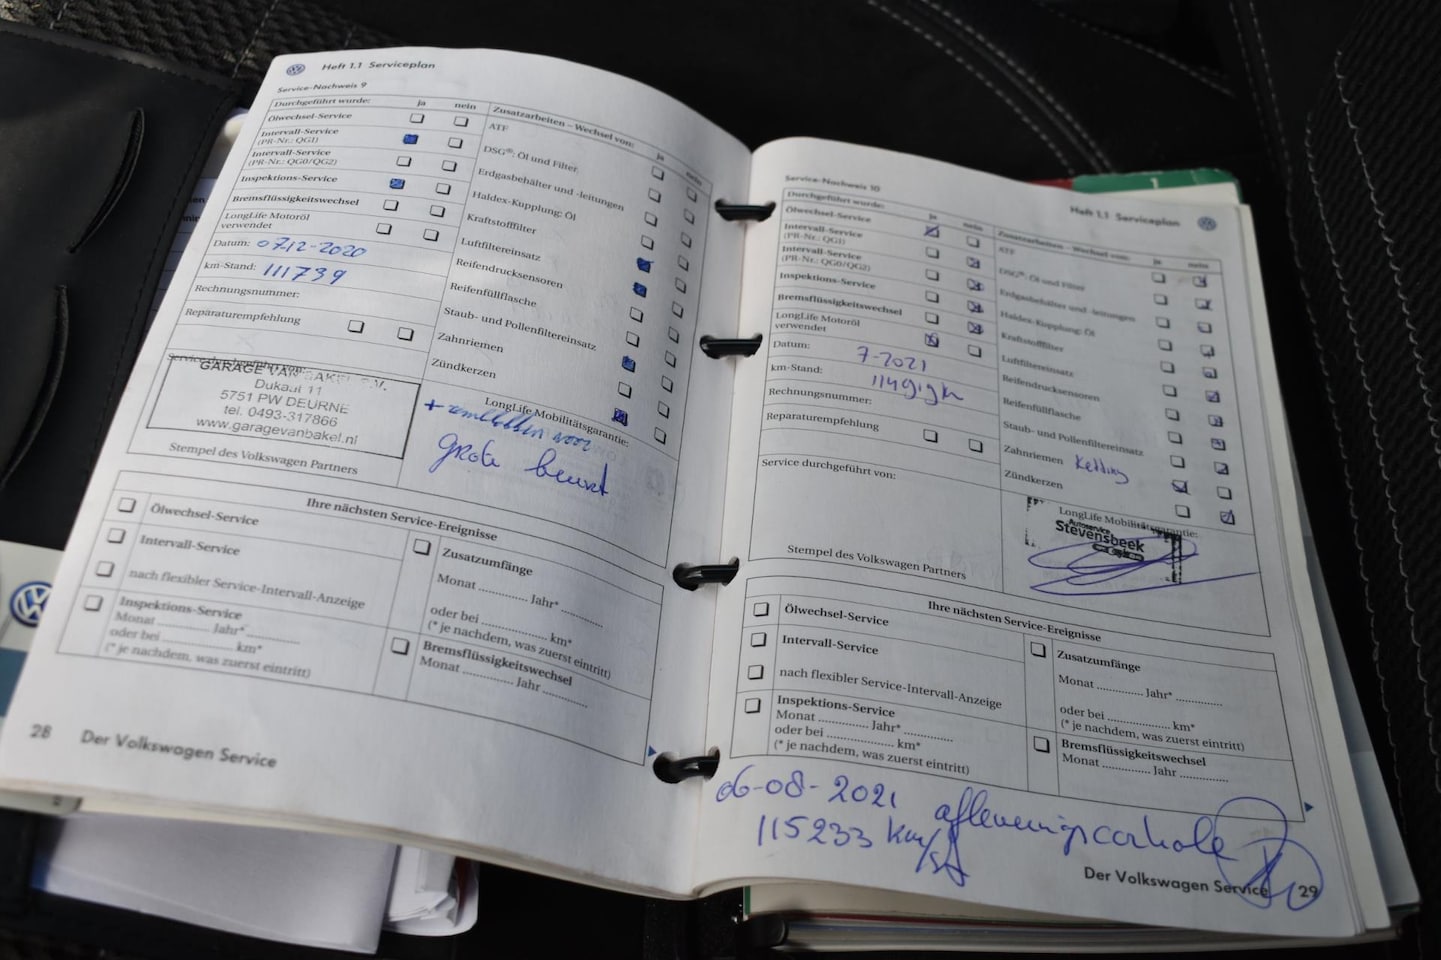 Heft 1.1 Serviceplan
Service-Nachweis 9
Durchgeführt wurde: ja nein
Ölwechsel-Service
Intervall-Service
(PR-Nr.: QG1)
Intervall-Service
(PR-Nr.: QG0/QG2)
Inspektions-Service
Bremsflüssigkeitswechsel
LongLife Motoröl
verwendet
Datum: 07-12-2020
km-Stand: 111739
Rechnungsnummer:
Reparaturempfehlung
Service durchgeführt von:
GARAGE VAN BAKEL B.V.
Dukaat 11
5751 PW DEURNE
tel. 0493-317866
www.garagevanbakel.nl
Stempel des Volkswagen Partners
Zusatzarbeiten – Wechsel von: ja nein
ATF
DSG®: Öl und Filter
Erdgasbehälter und -leitungen
Haldex-Kupplung: Öl
Kraftstofffilter
Luftfiltereinsatz
Reifendrucksensoren
Reifenfüllflasche
Staub- und Pollenfiltereinsatz
Zahnriemen
Zündkerzen
LongLife Mobilitätsgarantie:
+ remblokken voor
grote beurt
Ihre nächsten Service-Ereignisse
Ölwechsel-Service
Intervall-Service
nach flexibler Service-Intervall-Anzeige
Inspektions-Service
Monat ............... Jahr* ...............
oder bei ............... km*
(* je nachdem, was zuerst eintritt)
Zusatzumfänge
Monat ............... Jahr* ...............
oder bei ............... km*
(* je nachdem, was zuerst eintritt)
Bremsflüssigkeitswechsel
Monat ............... Jahr ...............
28 Der Volkswagen Service
Service-Nachweis 10
Heft 1.1 Serviceplan
Durchgeführt wurde: ja nein
Ölwechsel-Service
Intervall-Service
(PR-Nr.: QG1)
Intervall-Service
(PR-Nr.: QG0/QG2)
Inspektions-Service
Bremsflüssigkeitswechsel
LongLife Motoröl
verwendet
Datum: 7-2021
km-Stand: 114919km
Rechnungsnummer:
Reparaturempfehlung
Service durchgeführt von:
Stempel des Volkswagen Partners
Zusatzarbeiten – Wechsel von: ja nein
ATF
DSG®: Öl und Filter
Erdgasbehälter und -leitungen
Haldex-Kupplung: Öl
Kraftstofffilter
Luftfiltereinsatz
Reifendrucksensoren
Reifenfüllflasche
Staub- und Pollenfiltereinsatz
Zahnriemen Ketting
Zündkerzen
LongLife Mobilitätsgarantie:
Autoservice
Stevensbeek
Ihre nächsten Service-Ereignisse
Ölwechsel-Service
Intervall-Service
nach flexibler Service-Intervall-Anzeige
Inspektions-Service
Monat ............... Jahr* ...............
oder bei ............... km*
(* je nachdem, was zuerst eintritt)
Zusatzumfänge
Monat ............... Jahr* ...............
oder bei ............... km*
(* je nachdem, was zuerst eintritt)
Bremsflüssigkeitswechsel
Monat ............... Jahr ...............
06-08-2021 afleveringscontrole
115233 km/st
Der Volkswagen Service 29